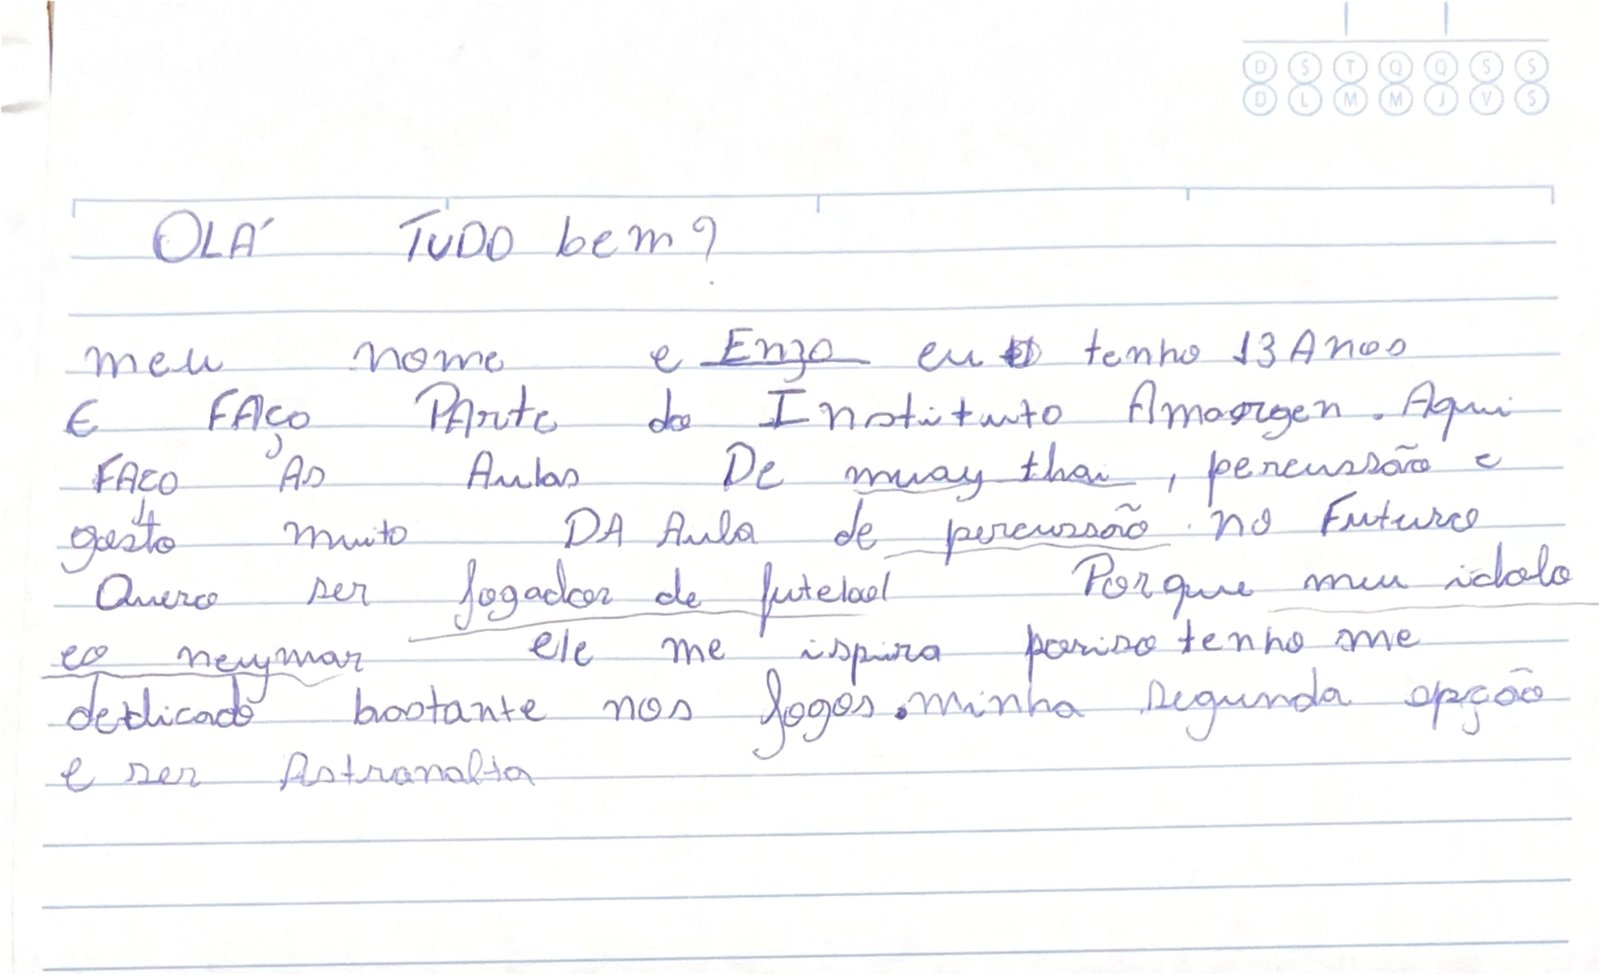 D S T Q Q S S
D L M M J V S
OLÁ TUDO bem?
meu nome e Enzo eu tenho 13 Anos
E FAÇO PArte do Instituto Amorgen. Aqui
FAÇO AS Aulas De muay thai, percussão e
gosto muito DA Aula de percussão. no Futuro
Quero ser jogador de futebol Porque meu idolo
eo neymar ele me ispira poriso tenho me
dedicado bastante nos jogos. minha segunda opção
e ser Astronalta